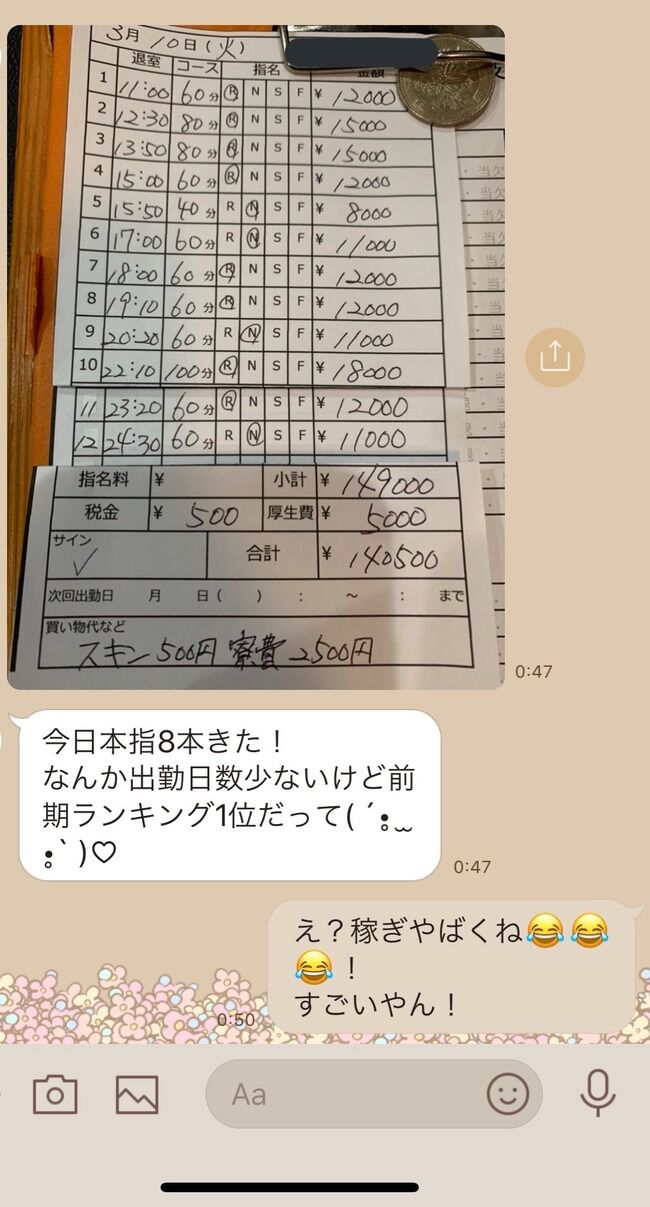 3月10日(火)
退室 コース 指名 金額
1 11:00 60分 R N S F ¥ 12000
2 12:30 80分 R N S F ¥ 15000
3 13:50 80分 R N S F ¥ 15000
4 15:00 60分 R N S F ¥ 12000
5 15:50 40分 R N S F ¥ 8000
6 17:00 60分 R N S F ¥ 11000
7 18:00 60分 R N S F ¥ 12000
8 19:10 60分 R N S F ¥ 12000
9 20:20 60分 R N S F ¥ 11000
10 22:10 100分 R N S F ¥ 18000
11 23:20 60分 R N S F ¥ 12000
12 24:30 60分 R N S F ¥ 11000
指名料 ¥ 小計 ¥ 149000
税金 ¥ 500 厚生費 ¥ 5000
サイン ✓ 合計 ¥ 140500
次回出勤日 月 日( ) : ~ : まで
買い物代など
スキン500円 寮費2500円
0:47
今日本指8本きた!
なんか出勤日数少ないけど前
期ランキング1位だって(´•̥ ̫
•̥`)♡
0:47
え?稼ぎやばくね😂😂
😂!
すごいやん!
0:50
Aa